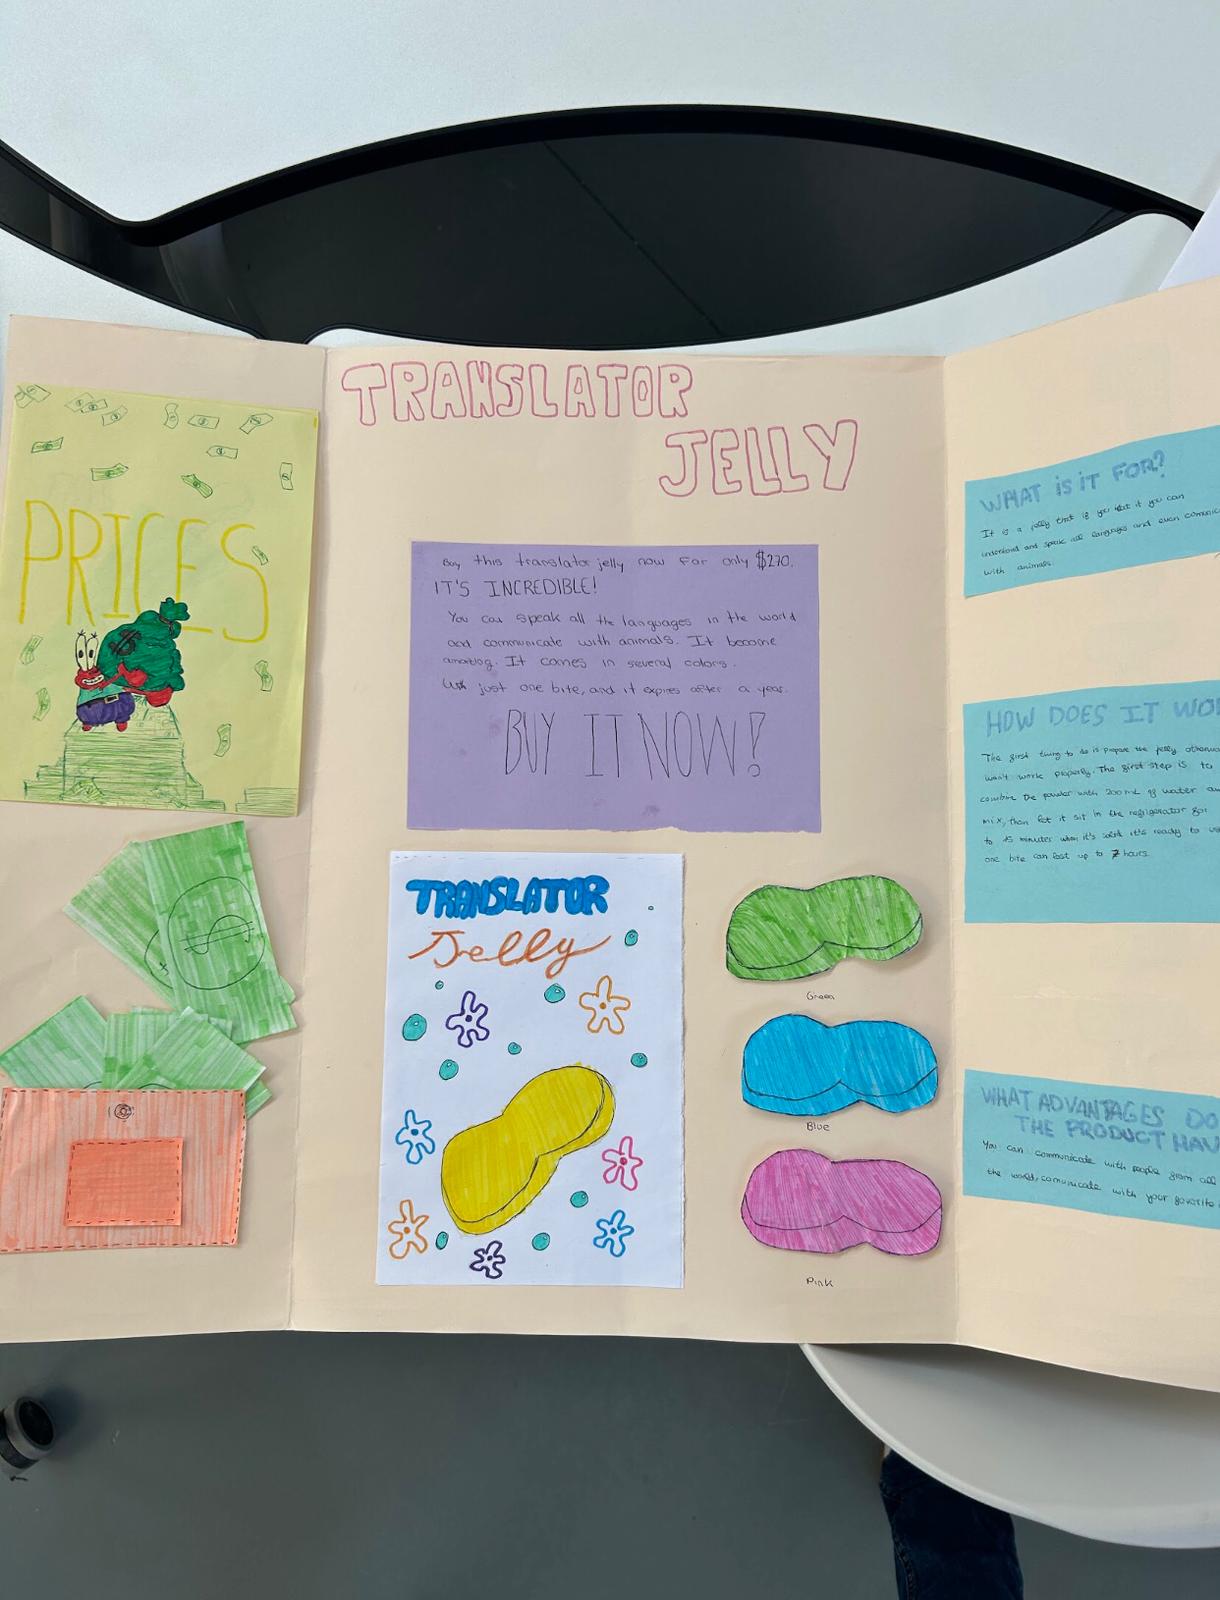 PRICES
TRANSLATOR
JELLY
Buy this translator jelly now for only $270.
IT'S INCREDIBLE!
You can speak all the languages in the world
and communicate with animals. It become
amazing. It comes in several colors.
just one bite, and it expires after a year.
BUY IT NOW!
TRANSLATOR
Jelly
Green
Blue
Pink
WHAT iS iT FOR?
It is a jelly that if you it you can
understand and speak all languages and even comunic
with animals.
HOW DOES IT WO
The first thing to do is prepare the jelly otherw
won't work properly. The first step is to
combine the powder with 200 mL of water a
mix, then let it sit in the refrigerator for
to 15 minutes when it's it's ready to us
one bite can last up to 7 hours.
WHAT ADVANTAGES DO
THE PRODUCT HAV
You can communicate with people from all
the world, comunicate with your favorite